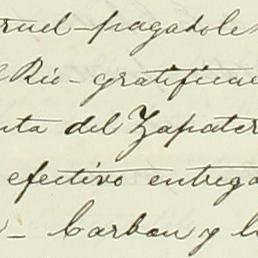 ruel - pagadole
l Rio - gratificac
nta del Zapater
efectivo entrega
- Carbon y l